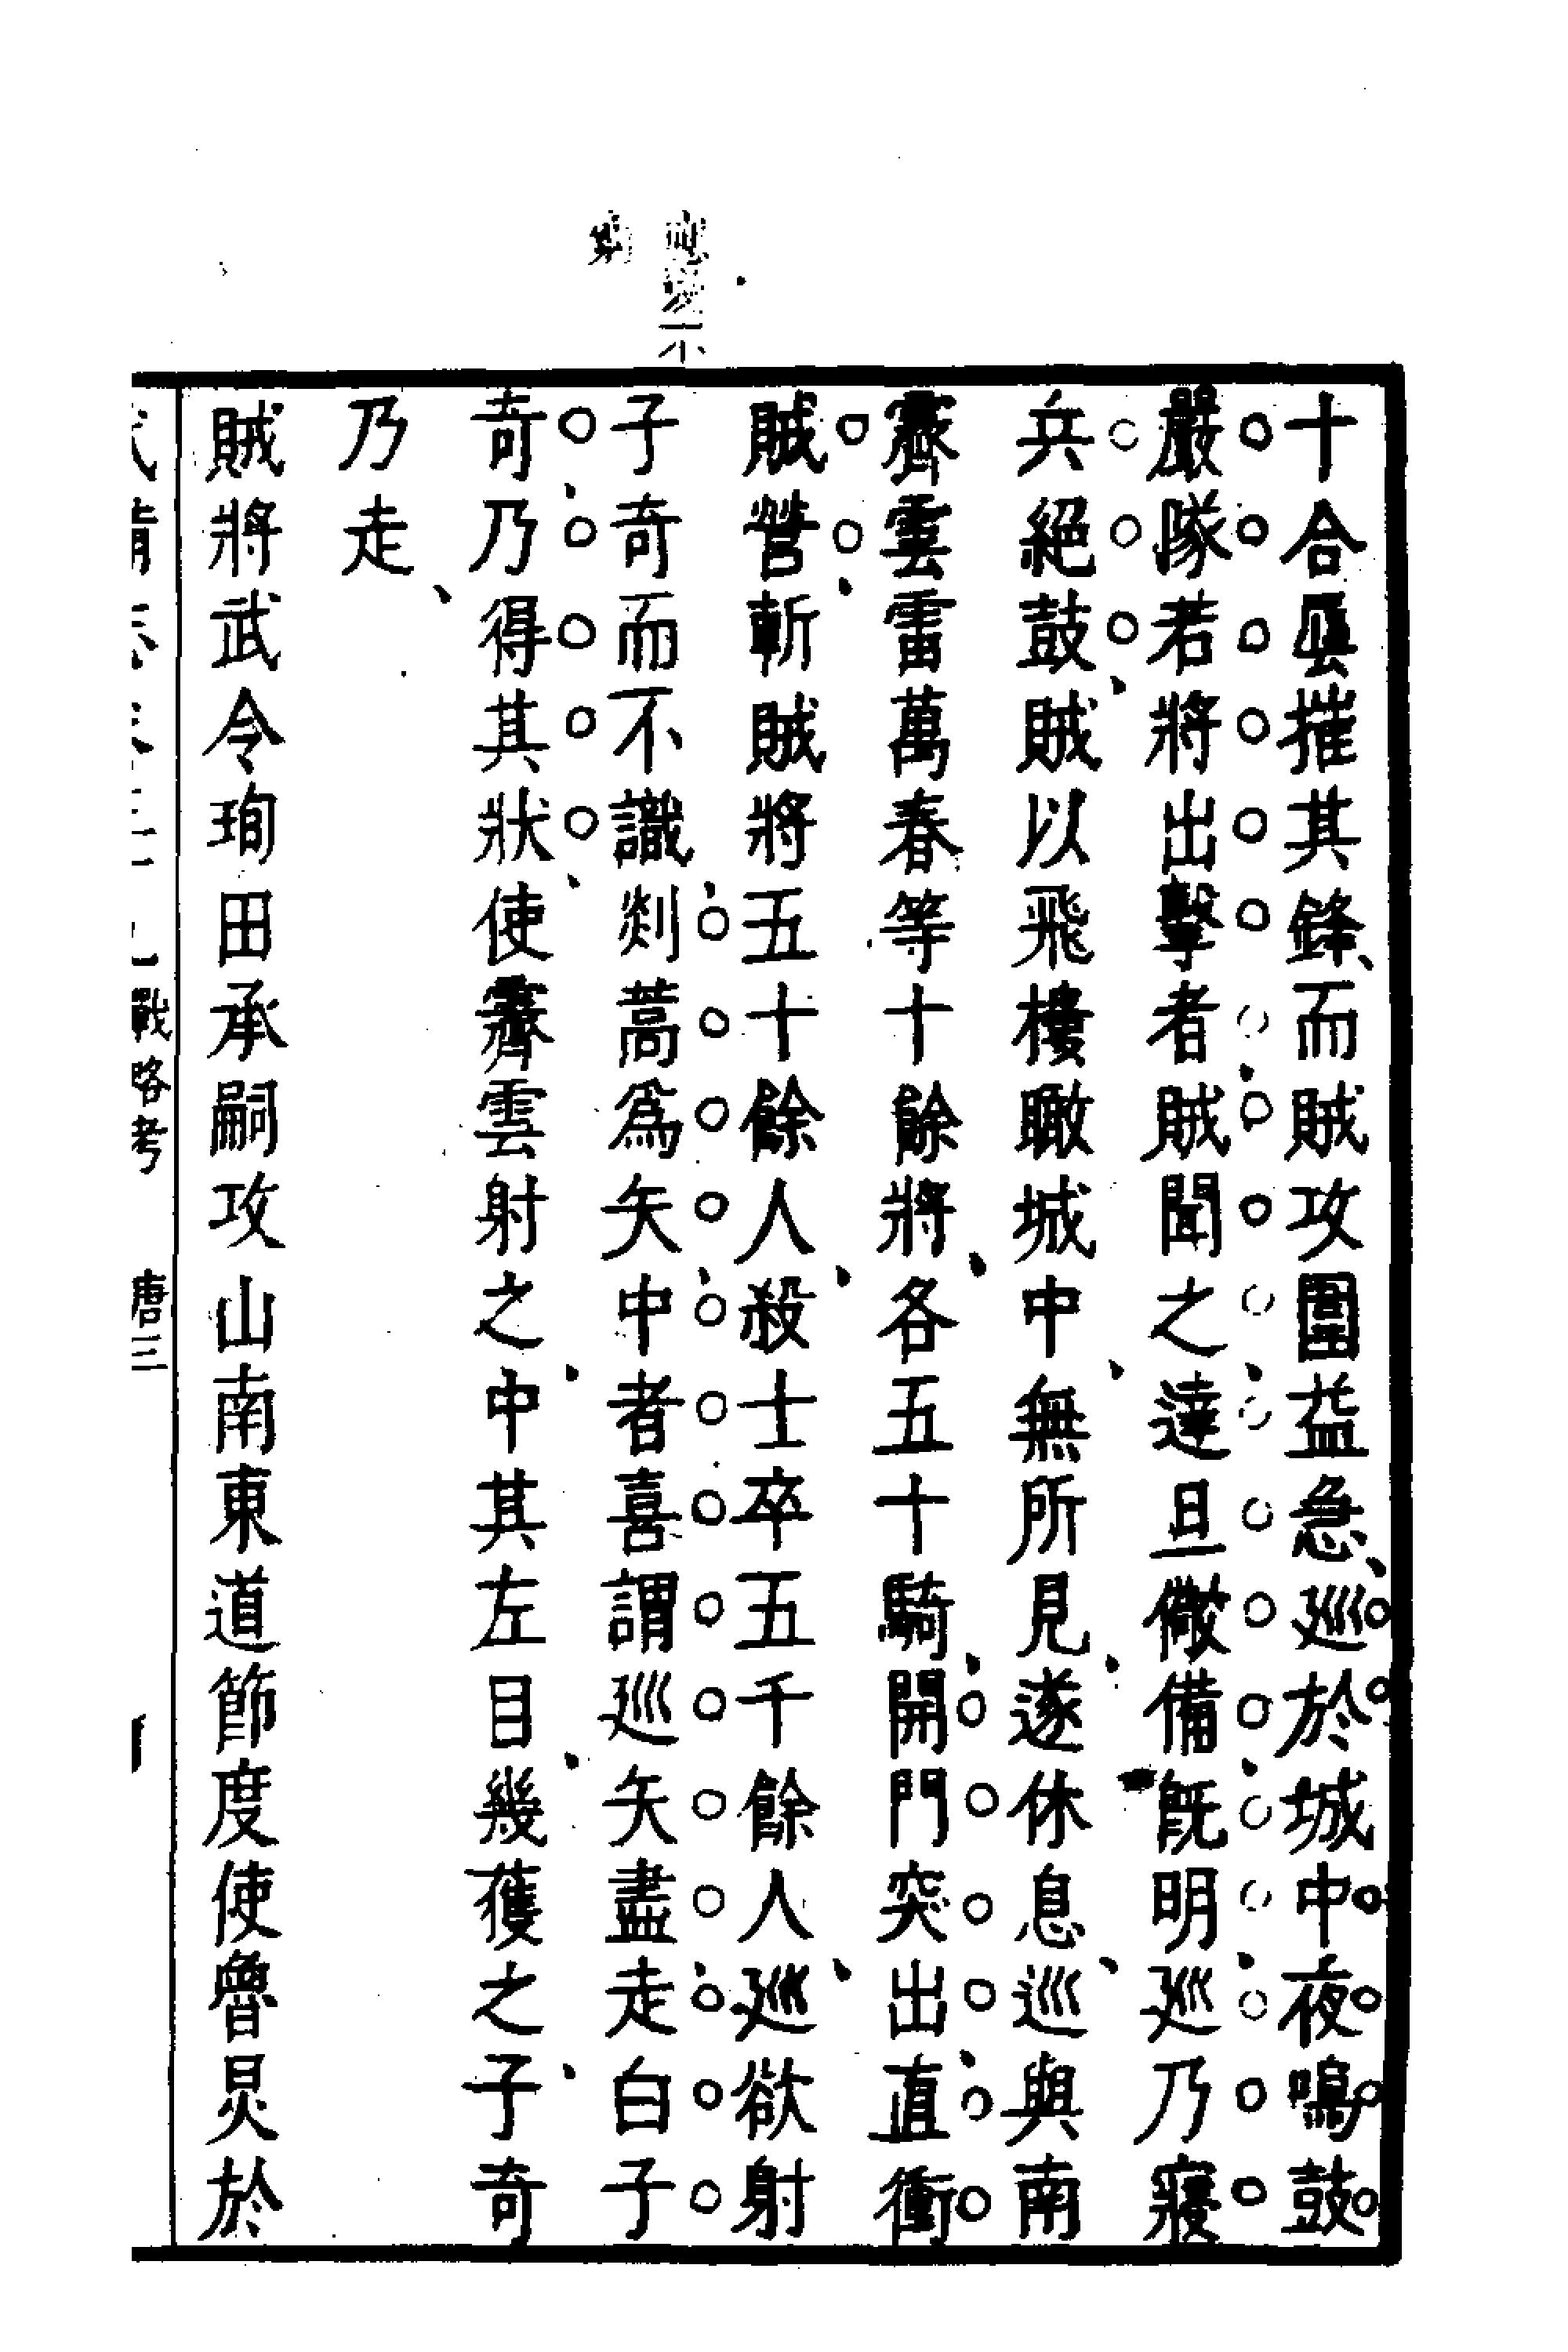 十合屢摧其鋒而賊攻圍益急巡於城中夜鳴鼓
嚴隊若將出擊者賊聞之達旦儆備旣明巡乃寢
兵絕鼓賊以飛樓瞰城中無所見遂休息巡與南
霽雲雷萬春等十餘將各五十騎開門突出直衝
賊營斬賊將五十餘人殺士卒五千餘人巡欲射
子奇而不識剡蒿爲矢中者喜謂巡矢盡走白子
奇乃得其狀使霽雲射之中其左目幾獲之子奇
乃走
賊將武令珣田承嗣攻山南東道節度使魯炅於
戰略考 唐三